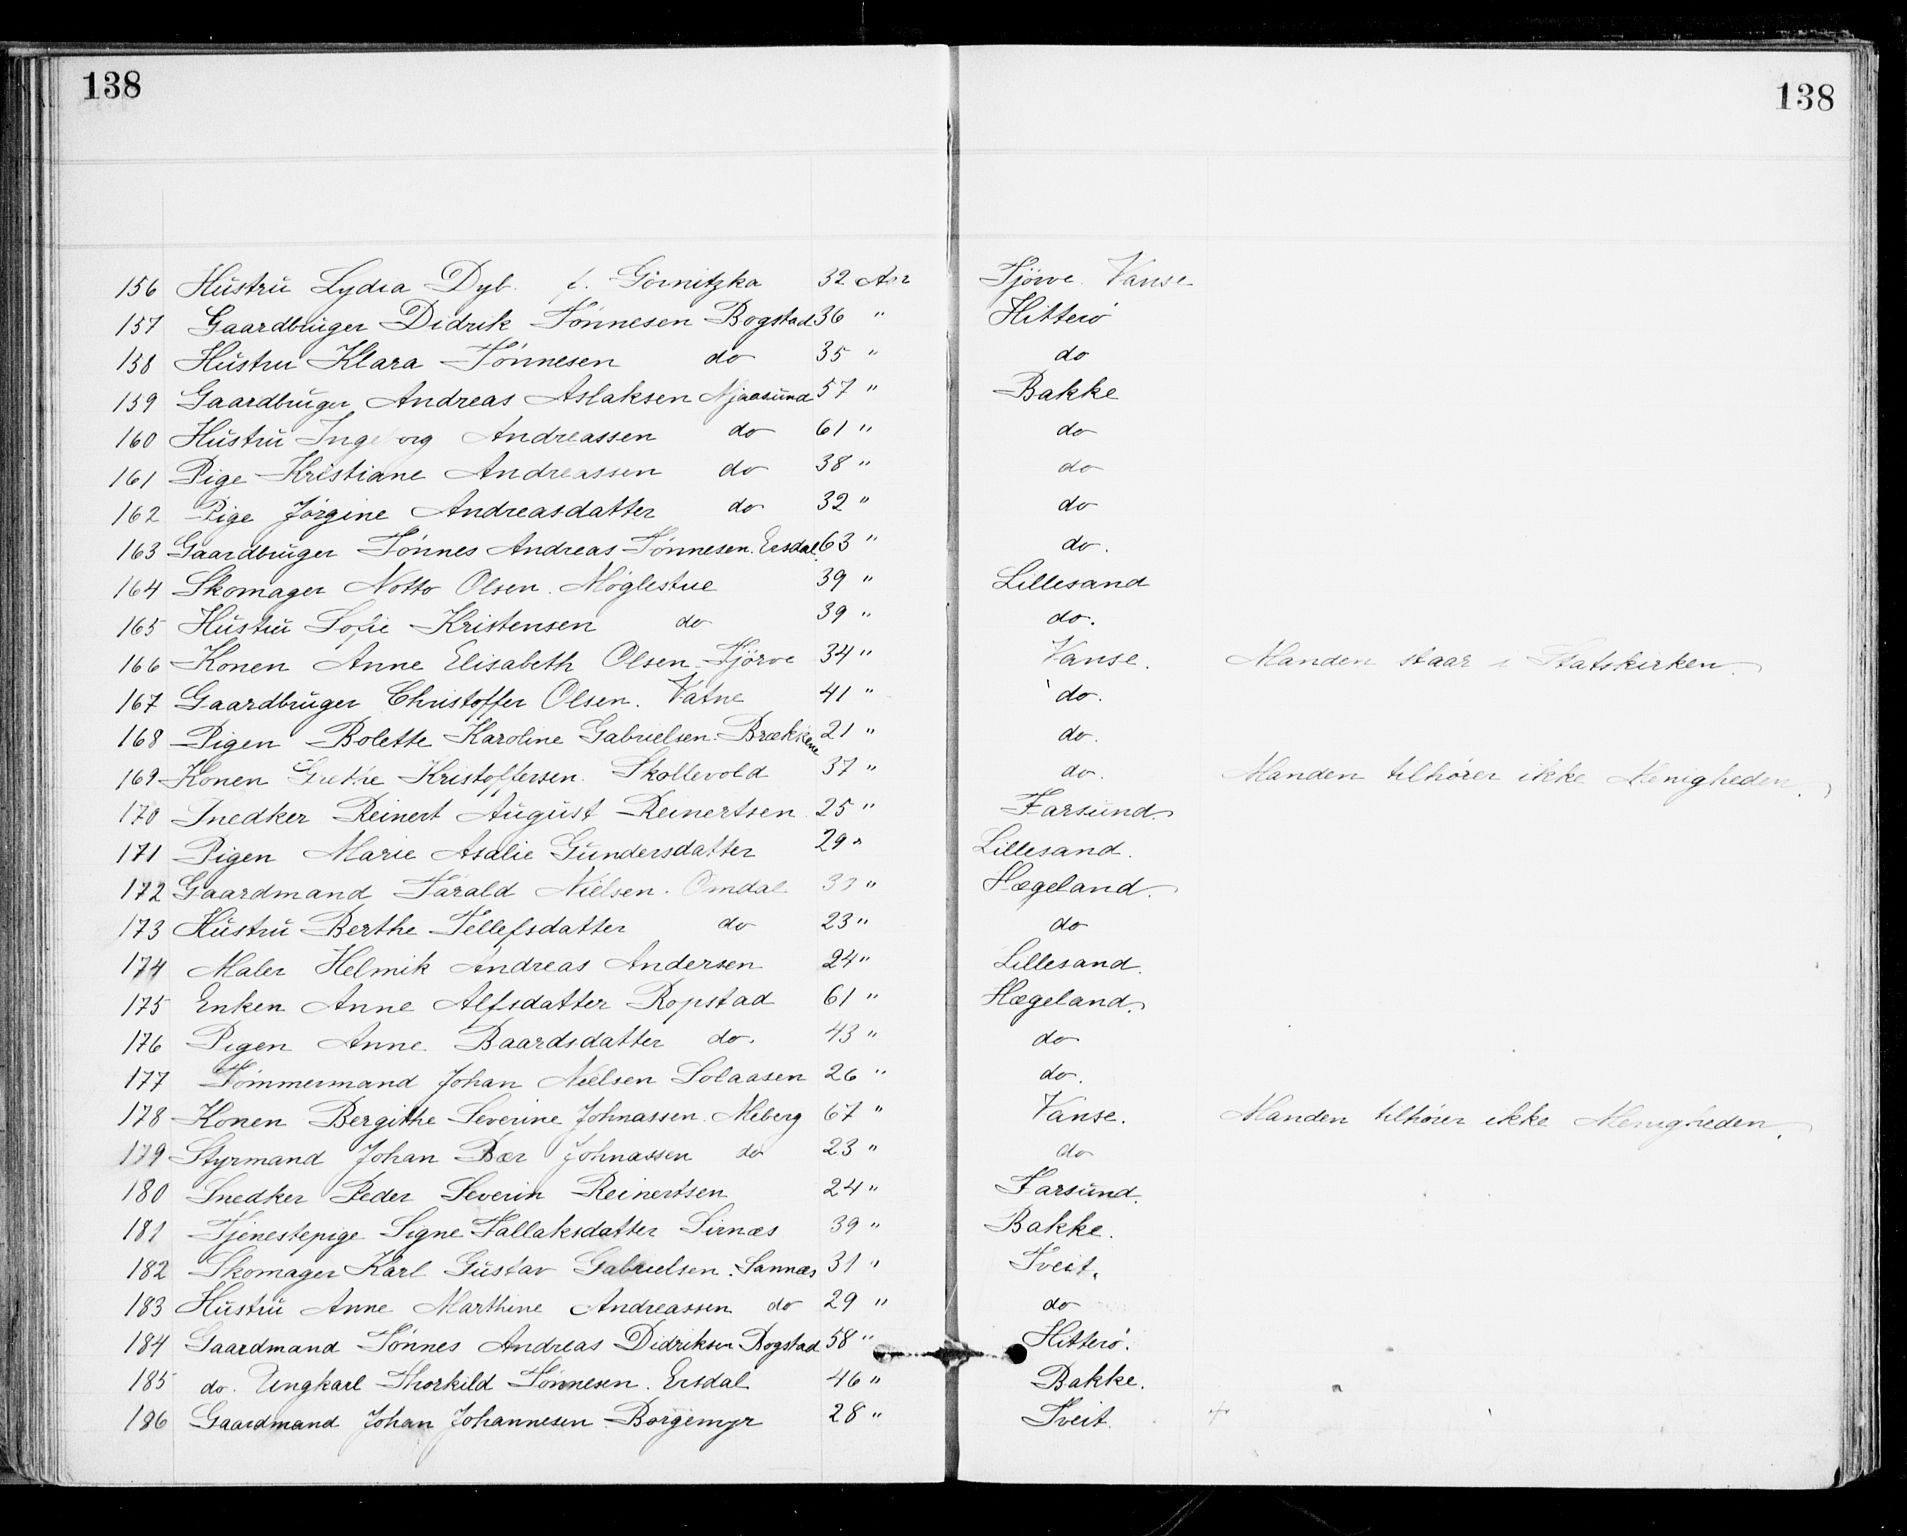 138 138
156 Hustru Lydia Dyb. f. Görnitzka 32 Aar Tjörve. Vanse
157 Gaardbruger Didrik Tönnesen Bogstad 36 " Hitterö
158 Hustru Klara Tönnesen do 35 " do
159 Gaardbruger Andreas Aslaksen Njaasund 57 " Bakke
160 Hustru Ingeborg Andreassen do 61 " do
161 Pige Kristiane Andreassen do 38 " do
162 Pige Jörgine Andreasdatter do 32 " do
163 Gaardbruger Tönnes Andreas Tönnesen. Ersdal. 63 " do.
164 Skomager Notto Olsen. Möglestue 39 " Lillesand
165 Hustru Sofie Kristensen do 39 " do.
166 Konen Anne Elisabeth Olsen Tjörve 34 " Vanse. Manden staar i Statskirken.
167 Gaardbruger Christoffer Olsen. Vatne 41 " do.
168 Pigen Bolette Karoline Gabrielsen. Brækkene 21 " do.
169 Konen Grethe Kristoffersen. Skollevold 37 " do. Manden tilhører ikke Menigheden.
170 Snedker Reinert August Reinertsen 25 " Farsund.
171 Pigen Marie Asalie Gundersdatter 29 " Lillesand.
172 Gaardmand Tarald Nielsen. Omdal " Hægeland.
173 Hustru Berthe Tellefsdatter do 23 " do
174 Maler Helmik Andreas Andersen 24 " Lillesand.
175 Enken Anne Alfsdatter Ropstad 61 " Hægeland.
176 Pigen Anne Baardsdatter do. 43 " do
177 Tömmermand Johan Nielsen Solaasen 26 " do.
178 Konen Bergithe Severine Johnassen. Meberg 67 " Vanse. Manden tilhører ikke Menigheden.
179 Styrmand Johan Bær Johnassen do 23 " do
180 Snedker Peder Severin Reinertsen 24 " Farsund.
181 Tjenestepige Signe Tallaksdatter Sirnæs 39 " Bakke.
182 Skomager Karl Gustav Gabrielsen. Sannæs 31 " Tveit.
183 Hustru Anne Marthine Andreassen do 29 " do
184 Gaardmand Tönnes Andreas Didriksen Bogstad 58 " Hitterö.
185 do. Ungkarl Thorkild Tönnesen. Ersdal 46 " Bakke.
186 Gaardmand Johan Johannesen Borgemyr 28 " Tveit. +